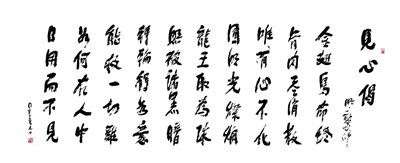 見心偈
金翅鳥命終
骨肉盡消散
唯有心不化
圓明光燦爛
龍王取為珠
照破諸黑暗
轉輪得如意
能救一切難
如何在人中
日用而不見